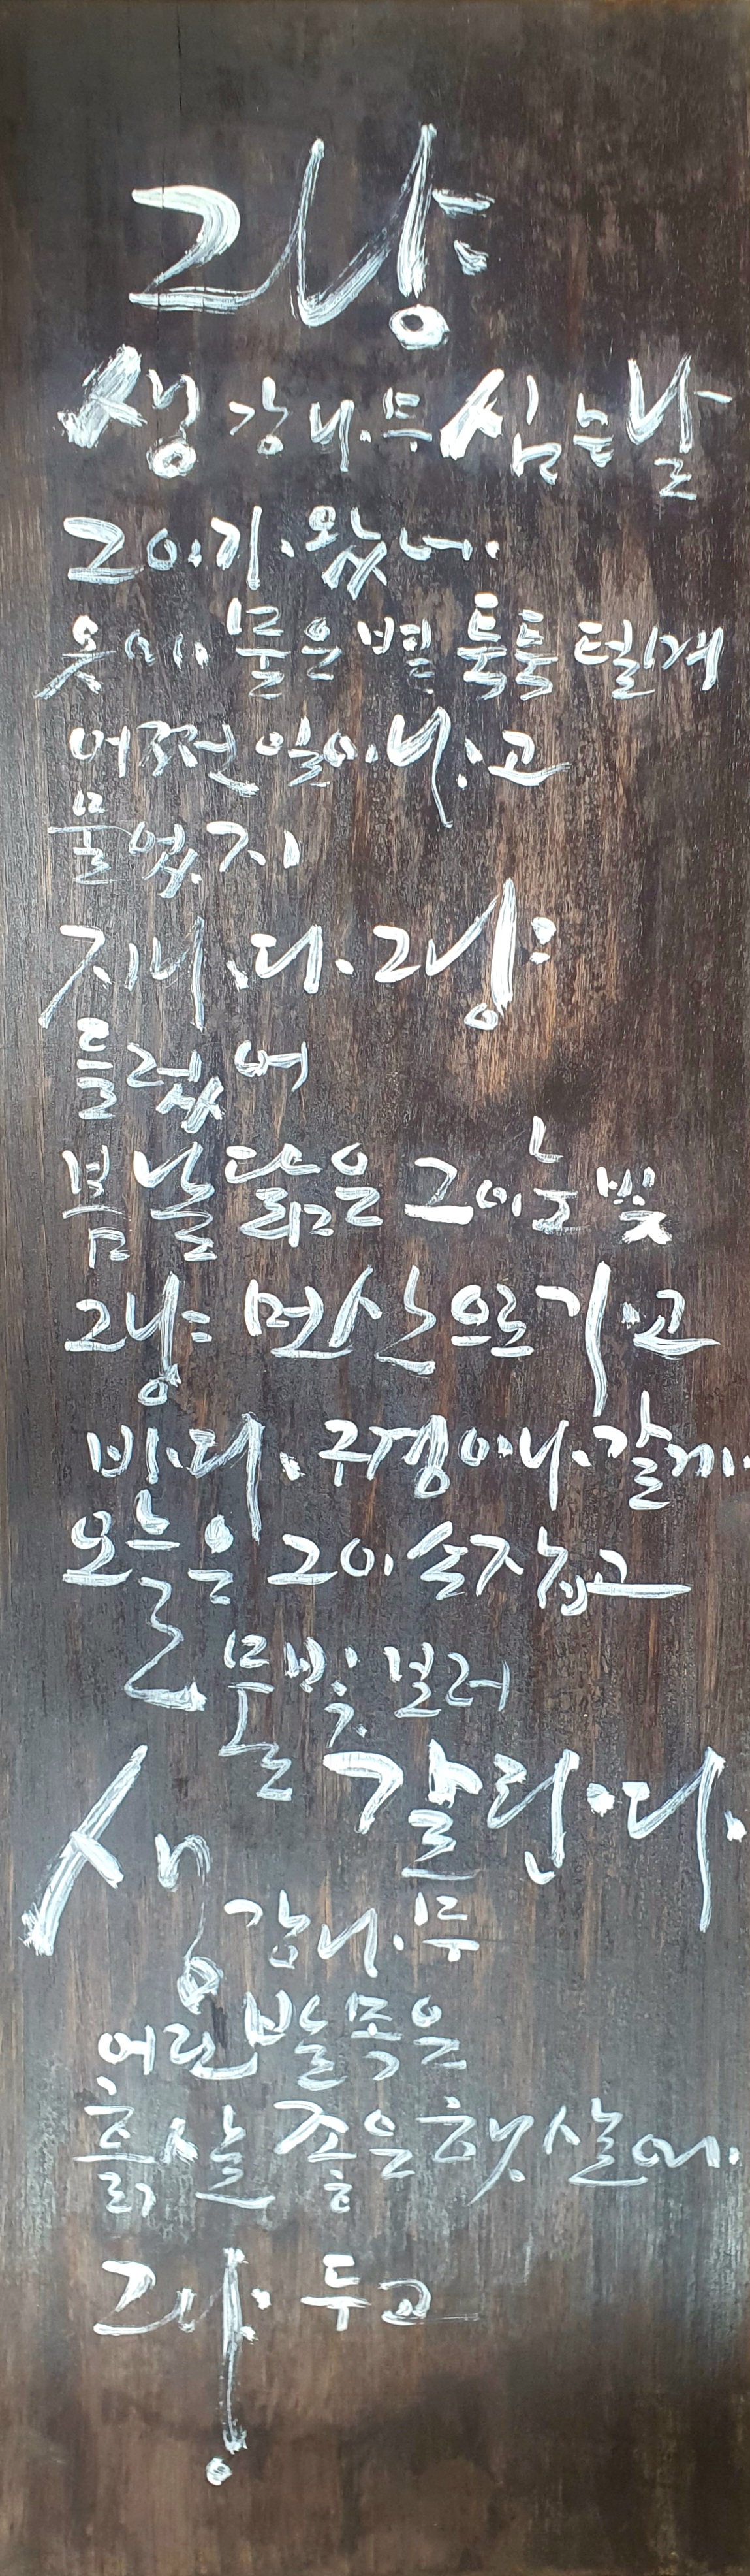 그냥
생강나무 심는 날
그이가 왔네
옷에 물은 볕 툭툭 털게
어쩐 일이냐고
물었지
지나다 그냥
들렀어
봄날 닮은 그이 눈빛
그냥 먼 산으로 가고
바다 구경이나 갈까
오늘은 그이 손 잡고
물빛 보러
갈란다
생강나무
어린 발목은
흙살 좋은 햇살에
그냥 두고